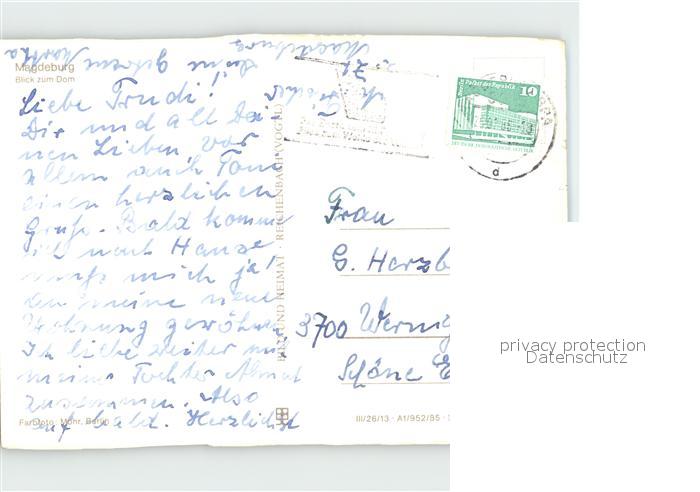 Magdeburg
Blick zum Dom
Magdeburg
Deine getreue Martha
Liebe Trudi!
Dir und all Dei-
nen Lieben vor
allem auch Toni
einen herzlichen
Gruß. Bald komme
ich nach Hause
muß mich ja
an meine neue
Wohnung gewöhnen
Ich liebe weiter mit
meine Tochter
zusammen. Also
auf bald. Herzlichst
Farbfoto: Mohr, Berlin
BILD UND HEIMAT REICHENBACH (VOGTL)
Palast der Republik
10
DEUTSCHE DEMOKRATISCHE REPUBLIK
d
Frau
G. Herzb
3700 Wernig
Schöne E
III/26/13 · A1/952/85
privacy protection
Datenschutz